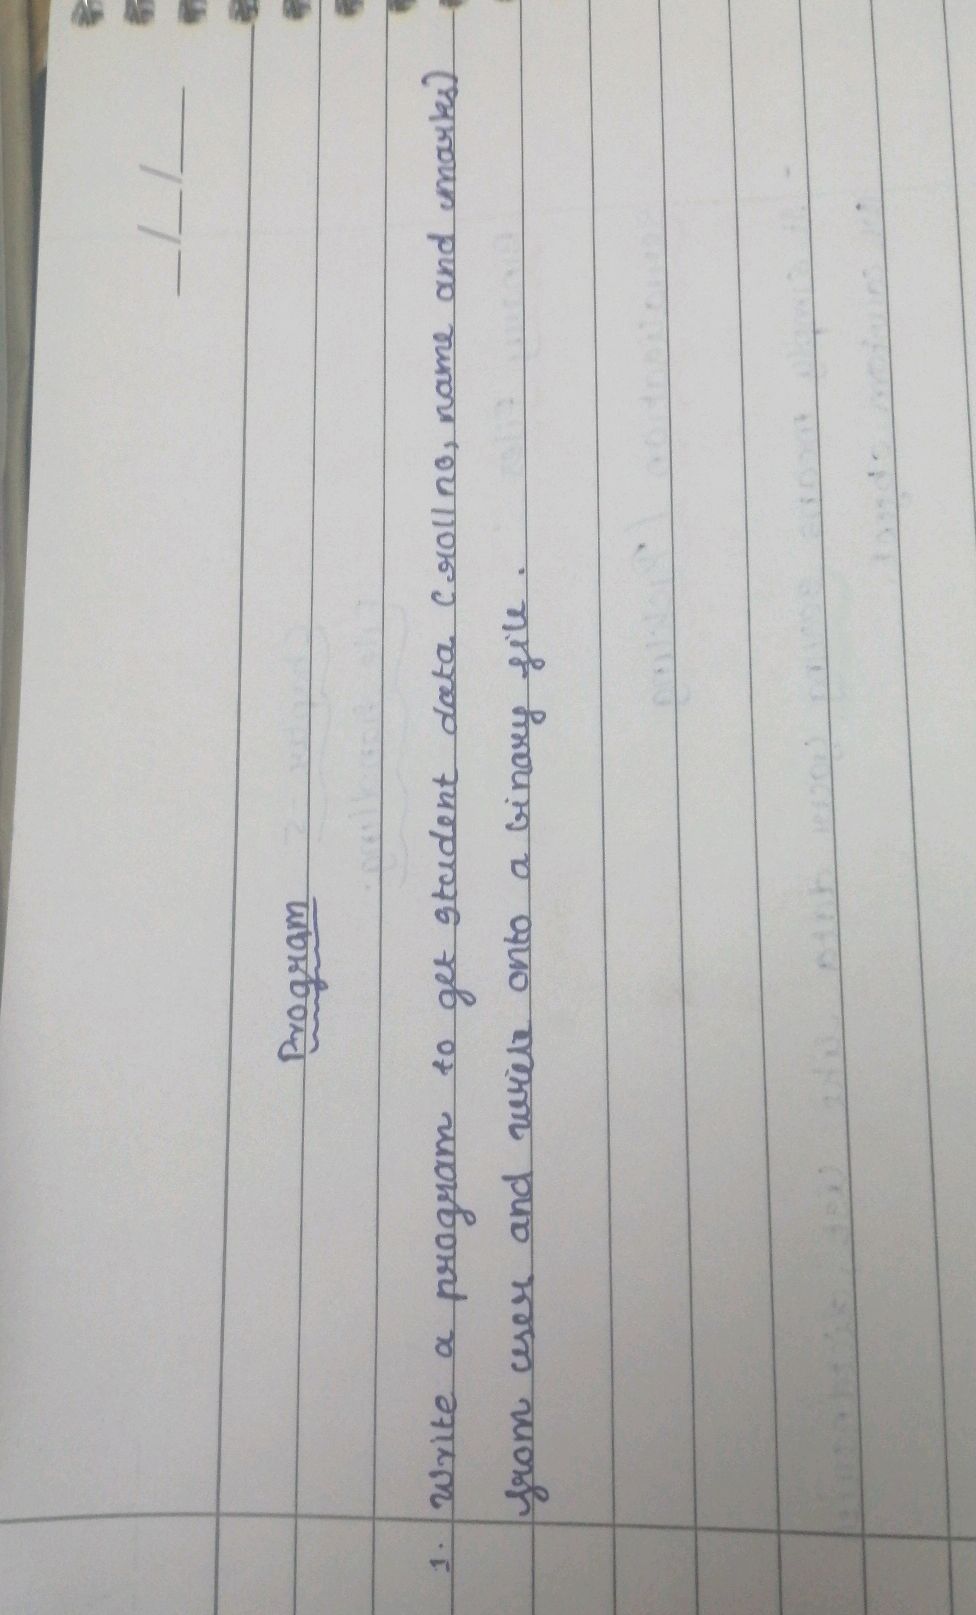 __/__/__
Program
1. Write a program to get student data (roll no, name and marks)
from user and write onto a binary file.